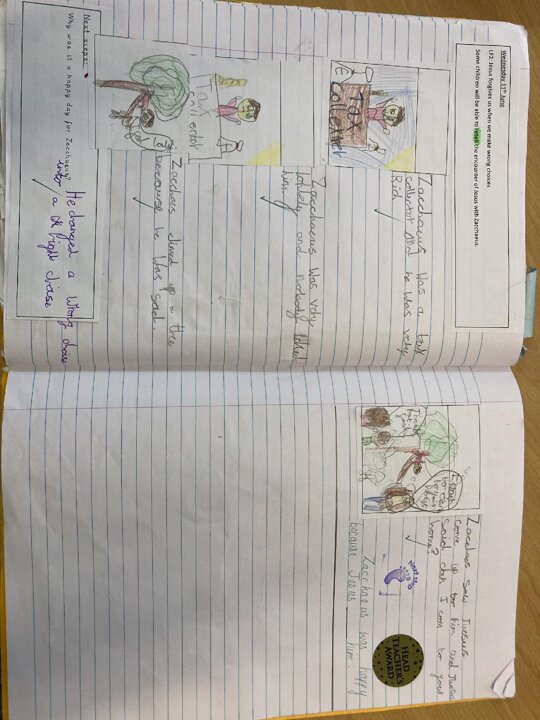 Wednesday 11th June
LF2: Jesus forgives us when we make wrong choices
Some children will be able to retell the encounter of Jesus with Zacchaeus.
Tax
collector
Zacchaeus was a tax
collector and he was very
Rich
Tax
collector
Zacchaeus was very
lonely and nobody liked
him.
Zacchaeus climed up a tree
because he was sad.
Next steps:
Why was it a happy day for Zacchaeus?
He changed a wrong choise
into a right choise
Zacchaeus saw Juesus
come up to him and Juesus
said can I com to your
home?
Next step
HEAD
TEACHER'S
AWARD
Zacchaeus was happy
because Jesus him